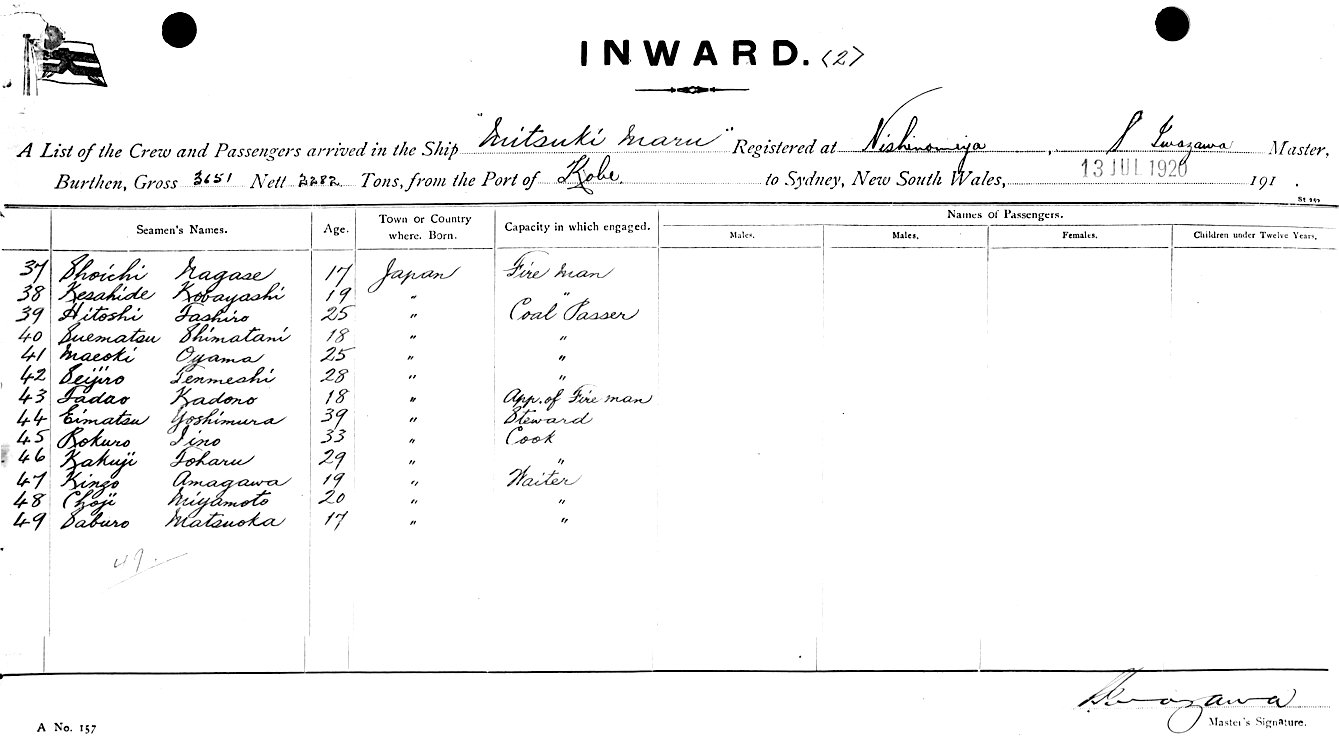 INWARD. <2>
A List of the Crew and Passengers arrived in the Ship "Mitsuki Maru" Registered at Nishinomiya, S Iwazawa Master,
Burthen, Gross 3651 Nett 2282 Tons, from the Port of Kobe. to Sydney, New South Wales, 13 JUL 1920 191 .
St 252
Seamen's Names. Age. Town or Country where. Born. Capacity in which engaged. Names of Passengers.
Males. Males. Females. Children under Twelve Years.
37 Shoichi Nagase 17 Japan Fire man
38 Kesahide Kobayashi 19 " "
39 Hitoshi Tashiro 25 " Coal Passer
40 Suematsu Shimatani 18 " "
41 Maeoki Oyama 25 " "
42 Seijiro Tenmeshi 28 " "
43 Tadao Kadono 18 " App. of Fire man
44 Eimatsu Yoshimura 39 " Steward
45 Rokuro Iino 33 " Cook
46 Kakuji Toharu 29 " "
47 Kingo Amagawa 19 " Waiter
48 Choji Miyamoto 20 " "
49 Saburo Matsuoka 17 " "
49.
S Iwazawa
Master's Signature.
A No. 157